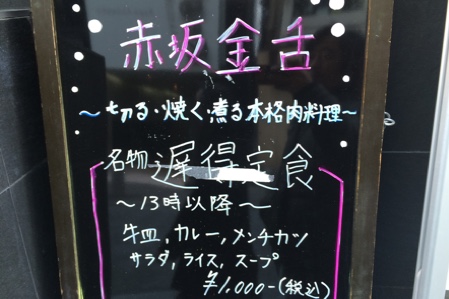 赤坂金舌
～切る・焼く・煮る本格肉料理～
名物 遅得定食
～13時以降～
牛皿,カレー,メンチカツ
サラダ,ライス,スープ
¥1,000-(税込)